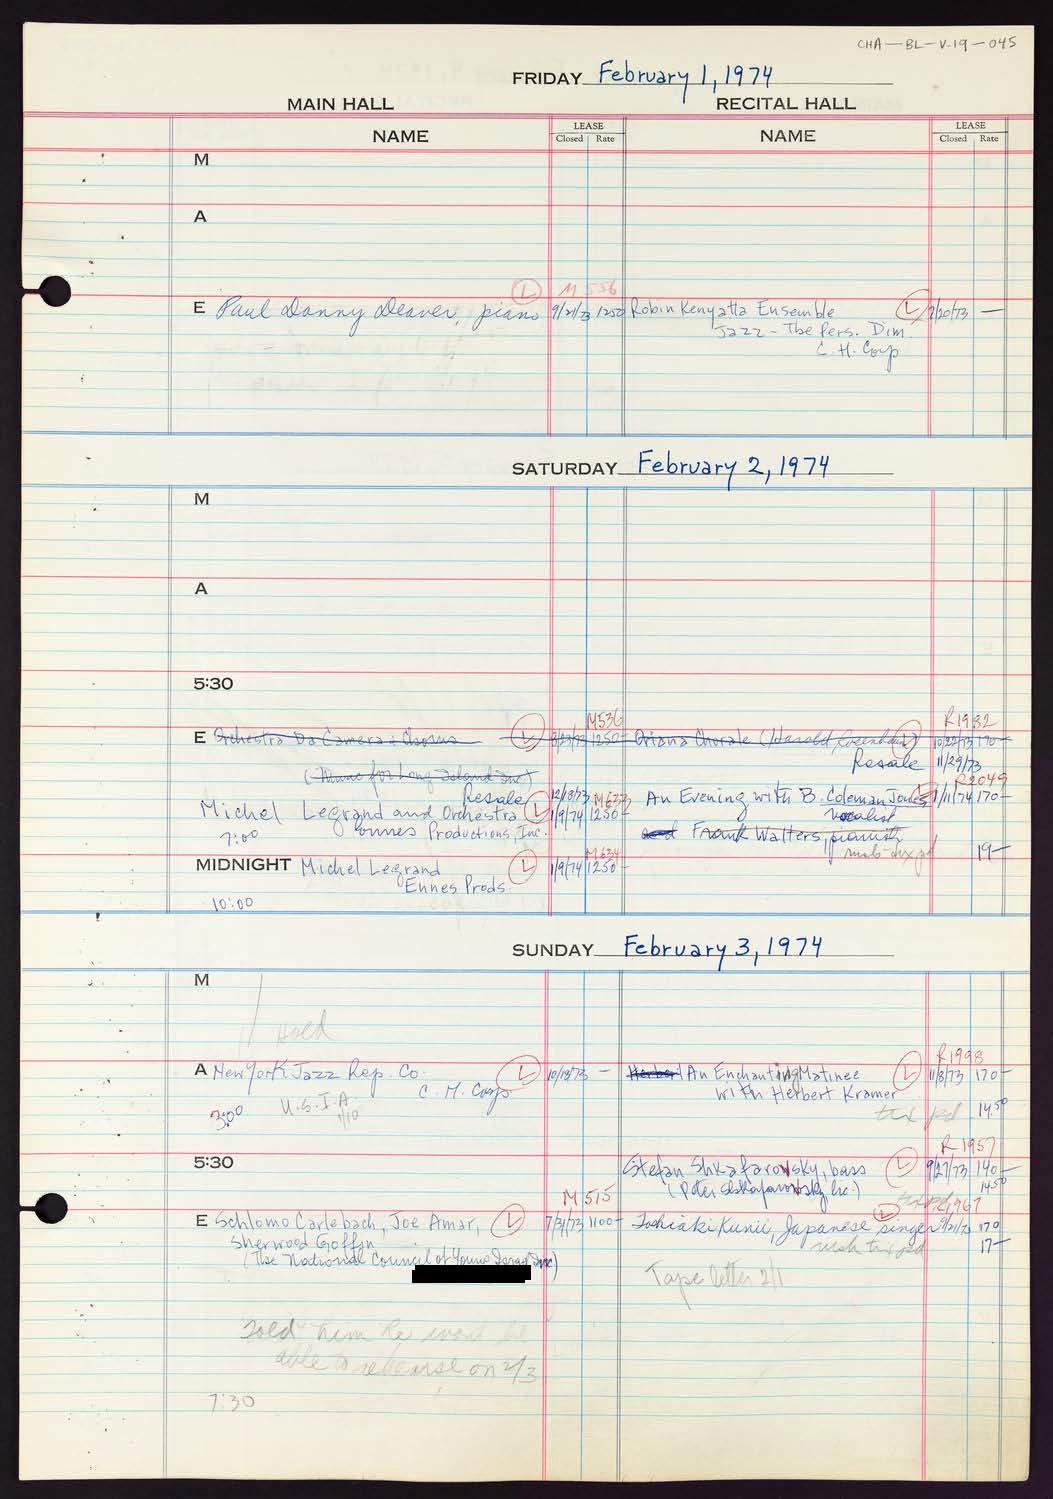 CHA-BL-V-19-045
FRIDAY February 1, 1974
MAIN HALL RECITAL HALL
NAME LEASE Closed Rate NAME LEASE Closed Rate
M
A
L M 536
E Paul Danny Deaver, piano 9/21/73 1250 Robin Kenyatta Ensemble L 7/20/73 —
Jazz - The Pers. Dim.
C. H. Corp
SATURDAY February 2, 1974
M
A
5:30
M536 R1982
E Orchestra Da Camera + Chorus L 8/23/73 1250- Oriana Chorale (Harold Rosenbaum) L 10/22/73 190-
Resale 11/29/73
(Music for Long Island Inc) R2049
Resale 12/18/73 M633 An Evening with B. Coleman Jones L 1/11/74 170-
Michel Legrand and Orchestra L 1/9/74 1250- vocalist
7:00 Ennes Productions, Inc. and Frank Walters, pianist
M634 19-
MIDNIGHT Michel Legrand L 1/9/74 1250-
Ennes Prods.
10:00
SUNDAY February 3, 1974
M
Hold
R1998
A New York Jazz Rep. Co. L 10/18/73 — Herbert An Enchanting Matinee L 11/8/73 170-
C. H. Corp with Herbert Kramer
3:00 U.S.I.A. 1/10 tax pd 14.50
R1957
5:30 Stefan Shkafarovsky, bass L 9/27/73 140-
(Peter Shkafarovsky Inc.) 14.50
M 515 tax pd 1967
E Schlomo Carlebach, Joe Amar, L 7/31/73 1100- Toshiaki Kunii, Japanese singer L 9/21/73 170
Sherwood Goffin 17-
(The National Council of Young Israel Inc)
Tape letter 2/1
Told him he wont be
able to rehearse on 2/3
7:30